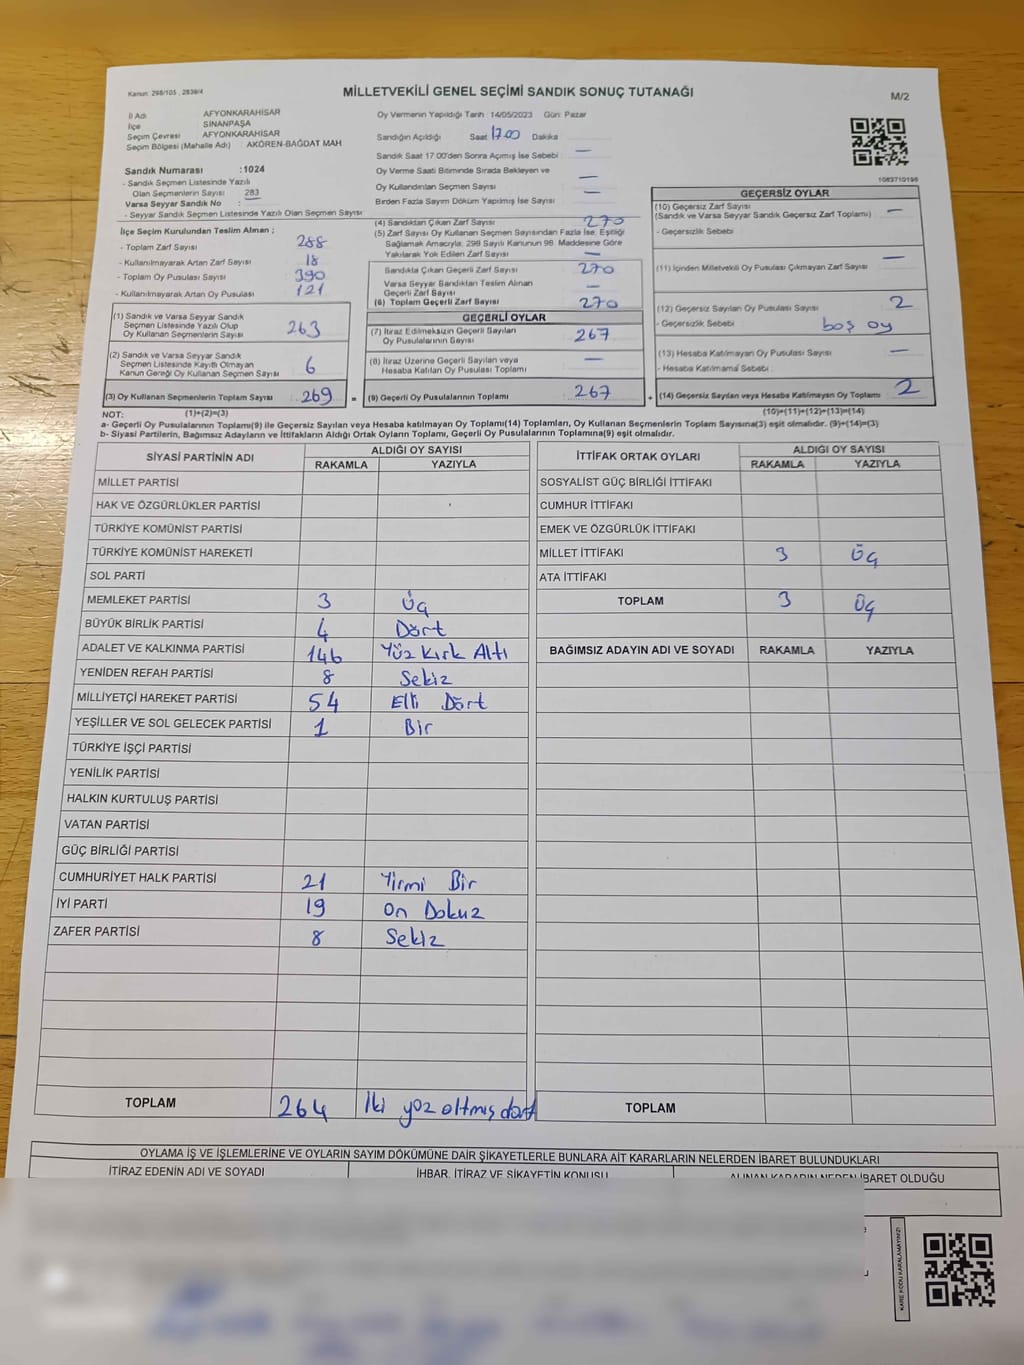 Kanun: 298/105 , 2839/4
MİLLETVEKİLİ GENEL SEÇİMİ SANDIK SONUÇ TUTANAĞI
M/2
İl Adı AFYONKARAHİSAR
İlçe SİNANPAŞA
Seçim Çevresi AFYONKARAHİSAR
Seçim Bölgesi (Mahalle Adı) : AKÖREN-BAĞDAT MAH
Sandık Numarası :1024
- Sandık Seçmen Listesinde Yazılı
Olan Seçmenlerin Sayısı 283
Varsa Seyyar Sandık No :
- Seyyar Sandık Seçmen Listesinde Yazılı Olan Seçmen Sayısı
Oy Vermenin Yapıldığı Tarih :14/05/2023 Gün: Pazar
Sandığın Açıldığı Saat 17.00 Dakika
Sandık Saat 17 00'den Sonra Açımış İse Sebebi : —
Oy Verme Saati Bitiminde Sırada Bekleyen ve
Oy Kullandırılan Seçmen Sayısı —
Birden Fazla Sayım Döküm Yapılmış İse Sayısı —
1063710196
İlçe Seçim Kurulundan Teslim Alınan ;
- Toplam Zarf Sayısı 288
- Kullanılmayarak Artan Zarf Sayısı 18
- Toplam Oy Pusulası Sayısı 390
- Kullanılmayarak Artan Oy Pusulası 121
(1) Sandık ve Varsa Seyyar Sandık
Seçmen Listesinde Yazılı Olup
Oy Kullanan Seçmenlerin Sayısı 263
(2) Sandık ve Varsa Seyyar Sandık
Seçmen Listesinde Kayıtlı Olmayan
Kanun Gereği Oy Kullanan Seçmen Sayısı 6
(3) Oy Kullanan Seçmenlerin Toplam Sayısı 269 =
(4) Sandıktan Çıkan Zarf Sayısı 270
(5) Zarf Sayısı Oy Kullanan Seçmen Sayısından Fazla İse, Eşitliği
Sağlamak Amacıyla; 298 Sayılı Kanunun 98. Maddesine Göre
Yakılarak Yok Edilen Zarf Sayısı —
Sandıkta Çıkan Geçerli Zarf Sayısı 270
Varsa Seyyar Sandıktan Teslim Alınan
Geçerli Zarf Sayısı —
(6) Toplam Geçerli Zarf Sayısı 270
GEÇERLİ OYLAR
(7) İtiraz Edilmeksizin Geçerli Sayılan
Oy Pusulalarının Sayısı 267
(8) İtiraz Üzerine Geçerli Sayılan veya
Hesaba Katılan Oy Pusulası Toplamı —
(9) Geçerli Oy Pusulalarının Toplamı 267 +
GEÇERSİZ OYLAR
(10) Geçersiz Zarf Sayısı
(Sandık ve Varsa Seyyar Sandık Geçersiz Zarf Toplamı) —
- Geçersizlik Sebebi :
(11) İçinden Milletvekili Oy Pusulası Çıkmayan Zarf Sayısı —
(12) Geçersiz Sayılan Oy Pusulası Sayısı 2
- Geçersizlik Sebebi : boş oy
(13) Hesaba Katılmayan Oy Pusulası Sayısı —
- Hesaba Katılmama Sebebi :
(14) Geçersiz Sayılan veya Hesaba Katılmayan Oy Toplamı 2
NOT: (1)+(2)=(3)
(10)+(11)+(12)+(13)=(14)
a- Geçerli Oy Pusulalarının Toplamı(9) ile Geçersiz Sayılan veya Hesaba katılmayan Oy Toplamı(14) Toplamları, Oy Kullanan Seçmenlerin Toplam Sayısına(3) eşit olmalıdır. (9)+(14)=(3)
b- Siyasi Partilerin, Bağımsız Adayların ve İttifakların Aldığı Ortak Oyların Toplamı, Geçerli Oy Pusulalarının Toplamına(9) eşit olmalıdır.
SİYASİ PARTİNİN ADI ALDIĞI OY SAYISI
RAKAMLA YAZIYLA
MİLLET PARTİSİ
HAK VE ÖZGÜRLÜKLER PARTİSİ
TÜRKİYE KOMÜNİST PARTİSİ
TÜRKİYE KOMÜNİST HAREKETİ
SOL PARTİ
MEMLEKET PARTİSİ 3 Üç
BÜYÜK BİRLİK PARTİSİ 4 Dört
ADALET VE KALKINMA PARTİSİ 146 Yüz Kırk Altı
YENİDEN REFAH PARTİSİ 8 Sekiz
MİLLİYETÇİ HAREKET PARTİSİ 54 Elli Dört
YEŞİLLER VE SOL GELECEK PARTİSİ 1 Bir
TÜRKİYE İŞÇİ PARTİSİ
YENİLİK PARTİSİ
HALKIN KURTULUŞ PARTİSİ
VATAN PARTİSİ
GÜÇ BİRLİĞİ PARTİSİ
CUMHURİYET HALK PARTİSİ 21 Yirmi Bir
İYİ PARTİ 19 On Dokuz
ZAFER PARTİSİ 8 Sekiz
TOPLAM 264 İki yüz altmış dört
İTTİFAK ORTAK OYLARI ALDIĞI OY SAYISI
RAKAMLA YAZIYLA
SOSYALİST GÜÇ BİRLİĞİ İTTİFAKI
CUMHUR İTTİFAKI
EMEK VE ÖZGÜRLÜK İTTİFAKI
MİLLET İTTİFAKI 3 Üç
ATA İTTİFAKI
TOPLAM 3 Üç
BAĞIMSIZ ADAYIN ADI VE SOYADI RAKAMLA YAZIYLA
TOPLAM
OYLAMA İŞ VE İŞLEMLERİNE VE OYLARIN SAYIM DÖKÜMÜNE DAİR ŞİKAYETLERLE BUNLARA AİT KARARLARIN NELERDEN İBARET BULUNDUKLARI
İTİRAZ EDENİN ADI VE SOYADI İHBAR, İTİRAZ VE ŞİKAYETİN KONUSU ALINAN KARARIN NEDEN İBARET OLDUĞU
KARE KODU KARALAMAYINIZ!